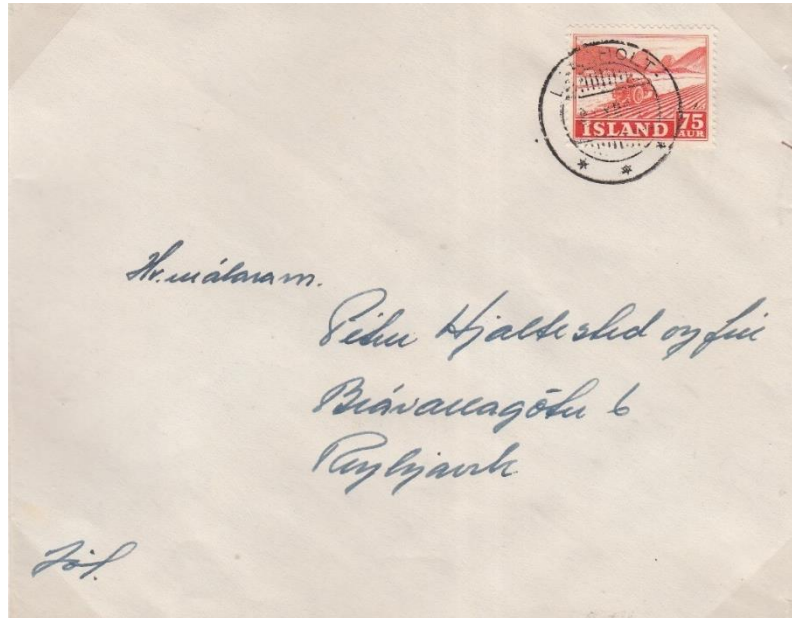 ÍSLAND 75 AUR
Hr. málaram.
Pétur Hjaltested og frú
Brávallagötu 6
Reykjavík
Jól.